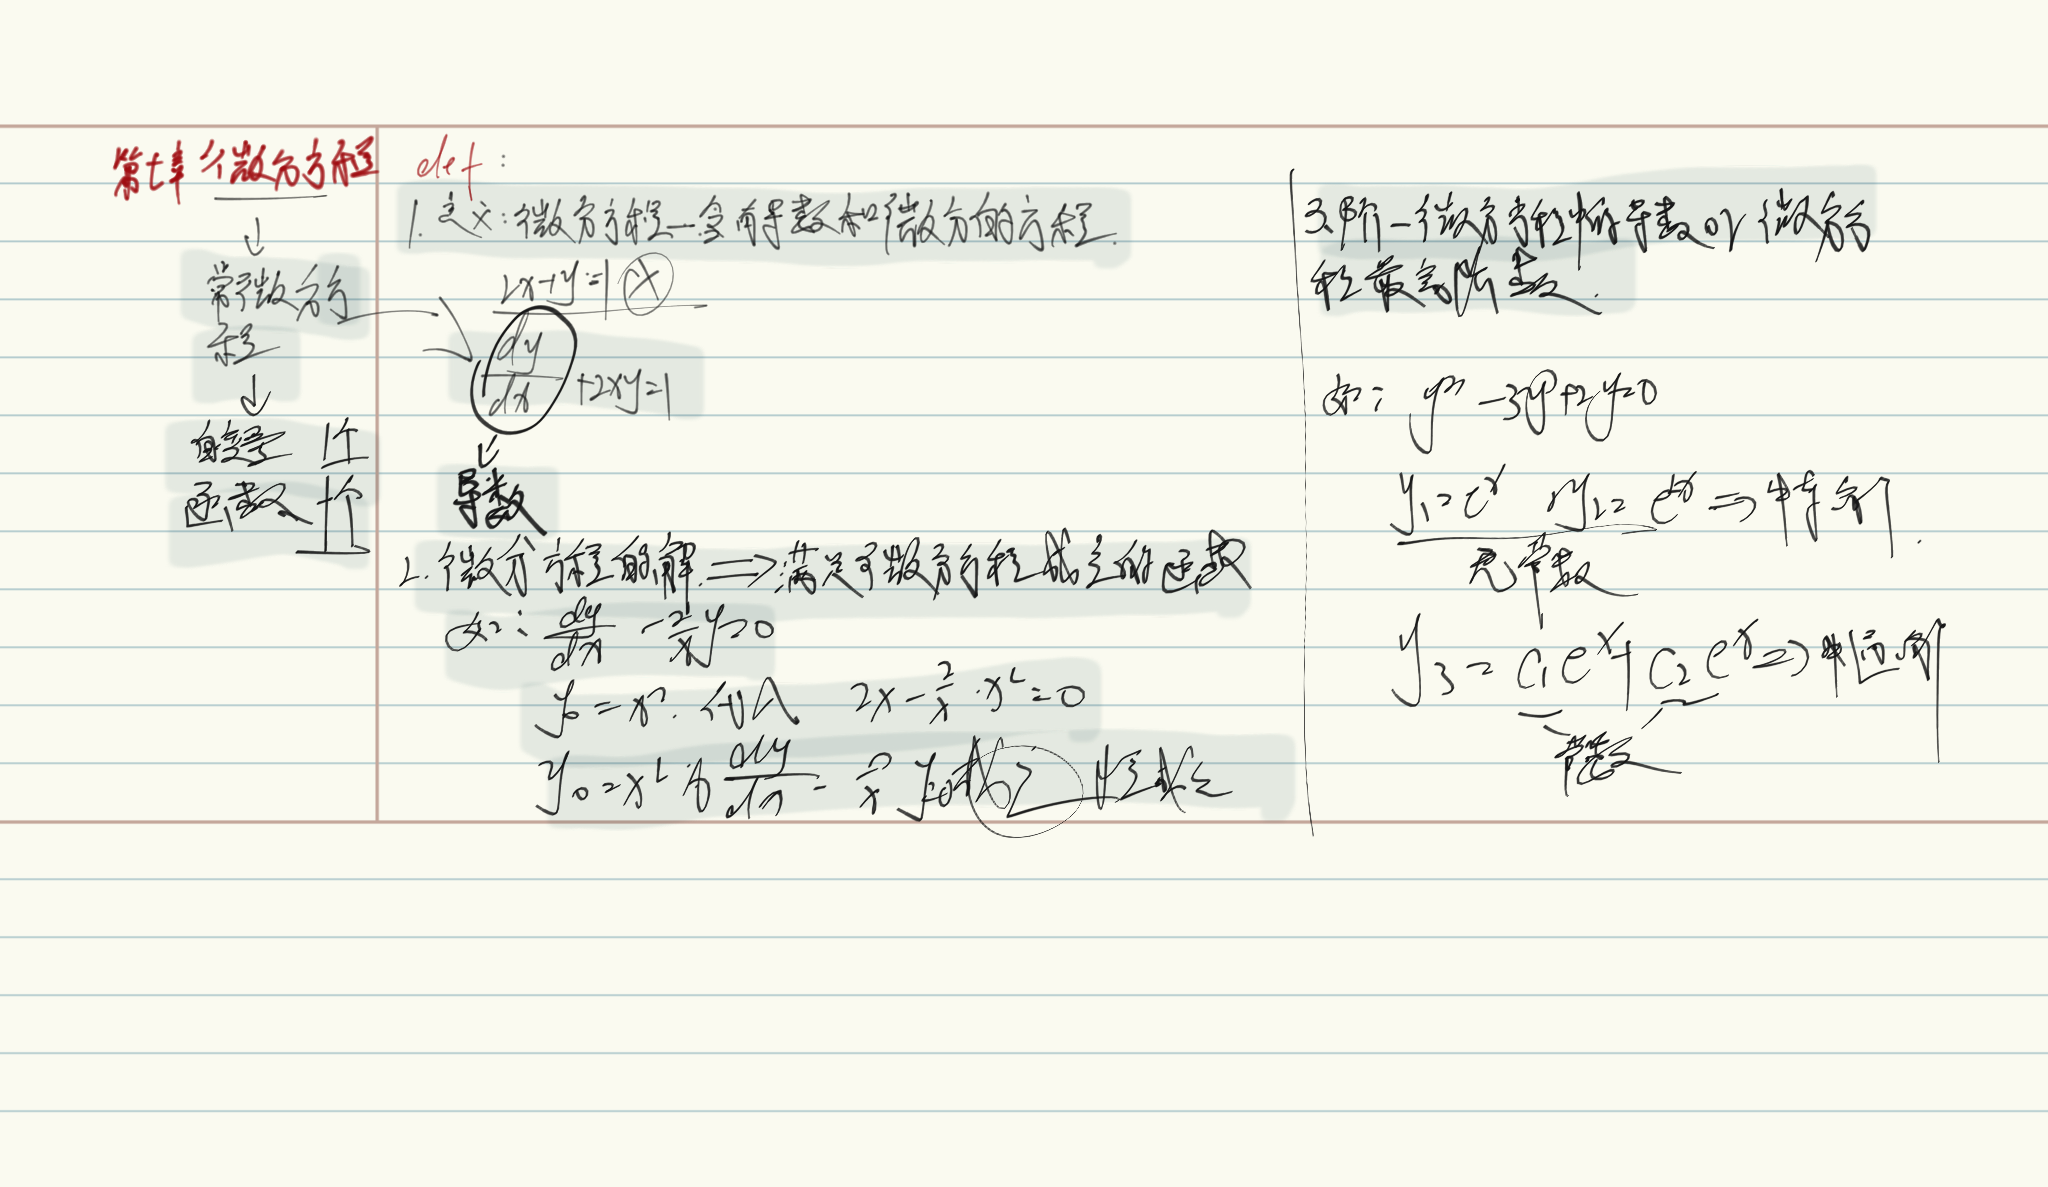 第七章 微分方程
↓
常微分方
程
↓
自变量 1个
函数 1个
def：
1. 定义：微分方程—含有导数和微分的方程.
2x+y=1 ⓧ
dy/dx +2xy=1
↓
导数
2. 微分方程的解. ⟹ 满足了微分方程成立的函数
如：dy/dx - 2/x y=0
y₀ = x². 代入 2x - 2/x · x² = 0
y₀=x² 为 dy/dx - 2/x y=0 成立 恒成立
3. 阶—微分方程中的导数or微分方
程最高阶数.
如： y'' -3y'+2y=0
y₁=eˣ y₂= e²ˣ ⟹ 特解.
无常数
y₃ = C₁eˣ+C₂eˣ ⟹ 通解
常数